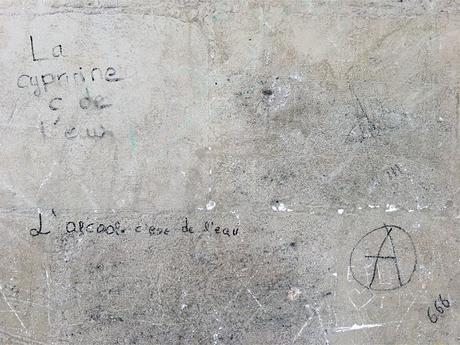 La
cyprine
c de
l'eau
L'alcool c'est de l'eau
A
666